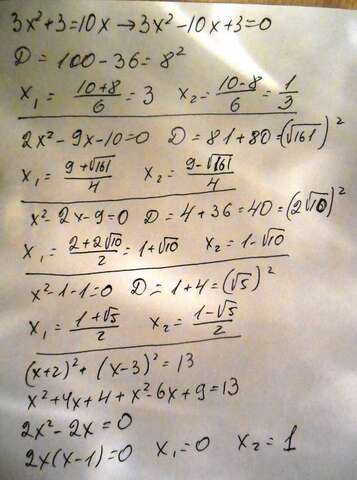 3x²+3=10x → 3x²-10x+3=0
D = 100-36=8²
x₁ = (10+8)/6 = 3 x₂ = (10-8)/6 = 1/3
2x²-9x-10=0 D=81+80=(√161)²
x₁ = (9+√161)/4 x₂ = (9-√161)/4
x²-2x-9=0 D=4+36=40=(2√10)²
x₁ = (2+2√10)/2 = 1+√10 x₂ = 1-√10
x²-1-1=0 D=1+4=(√5)²
x₁ = (1+√5)/2 x₂ = (1-√5)/2
(x+2)²+(x-3)²=13
x²+4x+4+x²-6x+9=13
2x²-2x=0
2x(x-1)=0 x₁=0 x₂=1